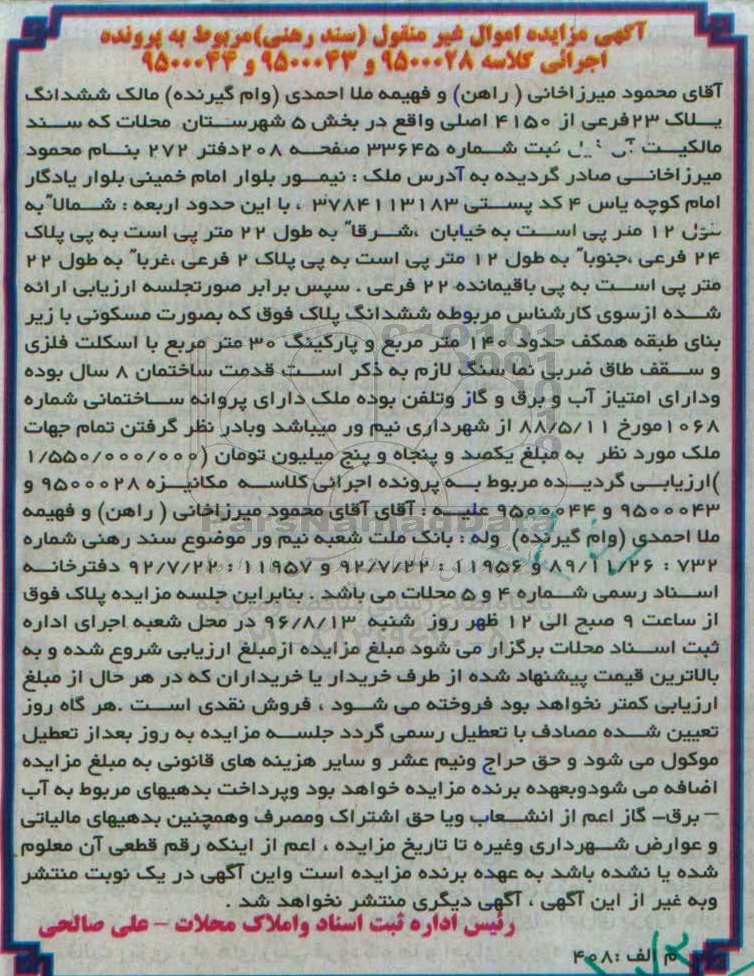 آگهی مزایده اموال غیر منقول (سند رهنی)مربوط به پرونده
اجرائی کلاسه ۹۵۰۰۰۲۸ و ۹۵۰۰۰۴۳ و ۹۵۰۰۰۴۴
آقای محمود میرزاخانی ( راهن) و فهیمه ملا احمدی (وام گیرنده) مالک ششدانگ
پلاک ۲۳فرعی از ۴۱۵۰ اصلی واقع در بخش ۵ شهرستان محلات که سند
مالکیت آن ذیل ثبت شماره ۳۳۶۴۵ صفحه ۲۰۸دفتر ۲۷۲ بنام محمود
میرزاخانی صادر گردیده به آدرس ملک : نیمور بلوار امام خمینی بلوار یادگار
امام کوچه یاس ۴ کد پستی ۳۷۸۴۱۱۳۱۸۳ ، با این حدود اربعه : شمالا" به
طول ۱۲ متر پی است به خیابان ،شرقا" به طول ۲۲ متر پی است به پی پلاک
۲۴ فرعی ،جنوبا" به طول ۱۲ متر پی است به پی پلاک ۲ فرعی ،غربا" به طول ۲۲
متر پی است به پی باقیمانده ۲۲ فرعی . سپس برابر صورتجلسه ارزیابی ارائه
شده ازسوی کارشناس مربوطه ششدانگ پلاک فوق که بصورت مسکونی با زیر
بنای طبقه همکف حدود ۱۴۰ متر مربع و پارکینگ ۳۰ متر مربع با اسکلت فلزی
و سقف طاق ضربی نما سنگ لازم به ذکر است قدمت ساختمان ۸ سال بوده
ودارای امتیاز آب و برق و گاز وتلفن بوده ملک دارای پروانه ساختمانی شماره
۱۰۶۸مورخ ۸۸/۵/۱۱ از شهرداری نیم ور میباشد وبادر نظر گرفتن تمام جهات
ملک مورد نظر به مبلغ یکصد و پنجاه و پنج میلیون تومان (۱/۵۵۰/۰۰۰/۰۰۰
)ارزیابی گردیده مربوط به پرونده اجرائی کلاسه مکانیزه ۹۵۰۰۰۲۸ و
۹۵۰۰۰۴۳ و ۹۵۰۰۰۴۴ علیه : آقای آقای محمود میرزاخانی ( راهن) و فهیمه
ملا احمدی (وام گیرنده) وله : بانک ملت شعبه نیم ور موضوع سند رهنی شماره
۷۳۲ : ۸۹/۱۱/۲۶ و ۱۱۹۵۶ : ۹۲/۷/۲۲ و ۱۱۹۵۷ : ۹۲/۷/۲۲ دفترخانه
اسناد رسمی شماره ۴ و ۵ محلات می باشد . بنابراین جلسه مزایده پلاک فوق
از ساعت ۹ صبح الی ۱۲ ظهر روز شنبه ۹۶/۸/۱۳ در محل شعبه اجرای اداره
ثبت اسناد محلات برگزار می شود مبلغ مزایده ازمبلغ ارزیابی شروع شده و به
بالاترین قیمت پیشنهاد شده از طرف خریدار یا خریداران که در هر حال از مبلغ
ارزیابی کمتر نخواهد بود فروخته می شود ، فروش نقدی است .هر گاه روز
تعیین شده مصادف با تعطیل رسمی گردد جلسه مزایده به روز بعداز تعطیل
موکول می شود و حق حراج ونیم عشر و سایر هزینه های قانونی به مبلغ مزایده
اضافه می شودوبعهده برنده مزایده خواهد بود وپرداخت بدهیهای مربوط به آب
– برق- گاز اعم از انشعاب ویا حق اشتراک ومصرف وهمچنین بدهیهای مالیاتی
و عوارض شهرداری وغیره تا تاریخ مزایده ، اعم از اینکه رقم قطعی آن معلوم
شده یا نشده باشد به عهده برنده مزایده است واین آگهی در یک نوبت منتشر
وبه غیر از این آگهی ، آگهی دیگری منتشر نخواهد شد .
رئیس اداره ثبت اسناد واملاک محلات - علی صالحی
م الف :۴۰۸
ParsNamadData